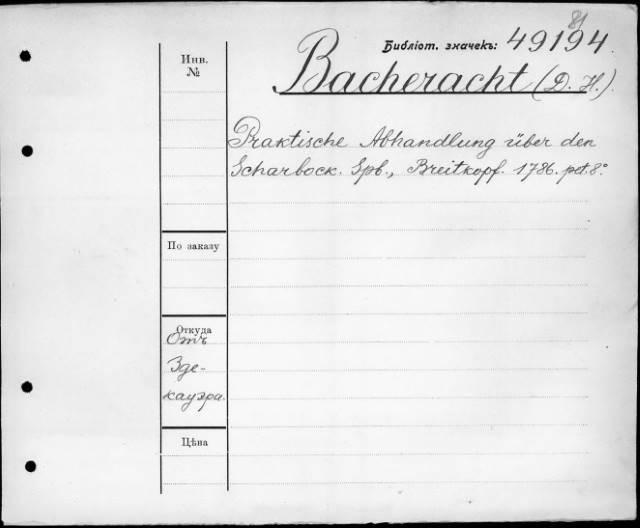 81
Библіот. значекъ: 49194.
Инв.
№
Bacheracht (D. H.).
Praktische Abhandlung über den
Scharbock. Spb., Breitkopf. 1786. pet. 8°
По заказу
Откуда
Отъ
Зде-
кауэра.
Цѣна